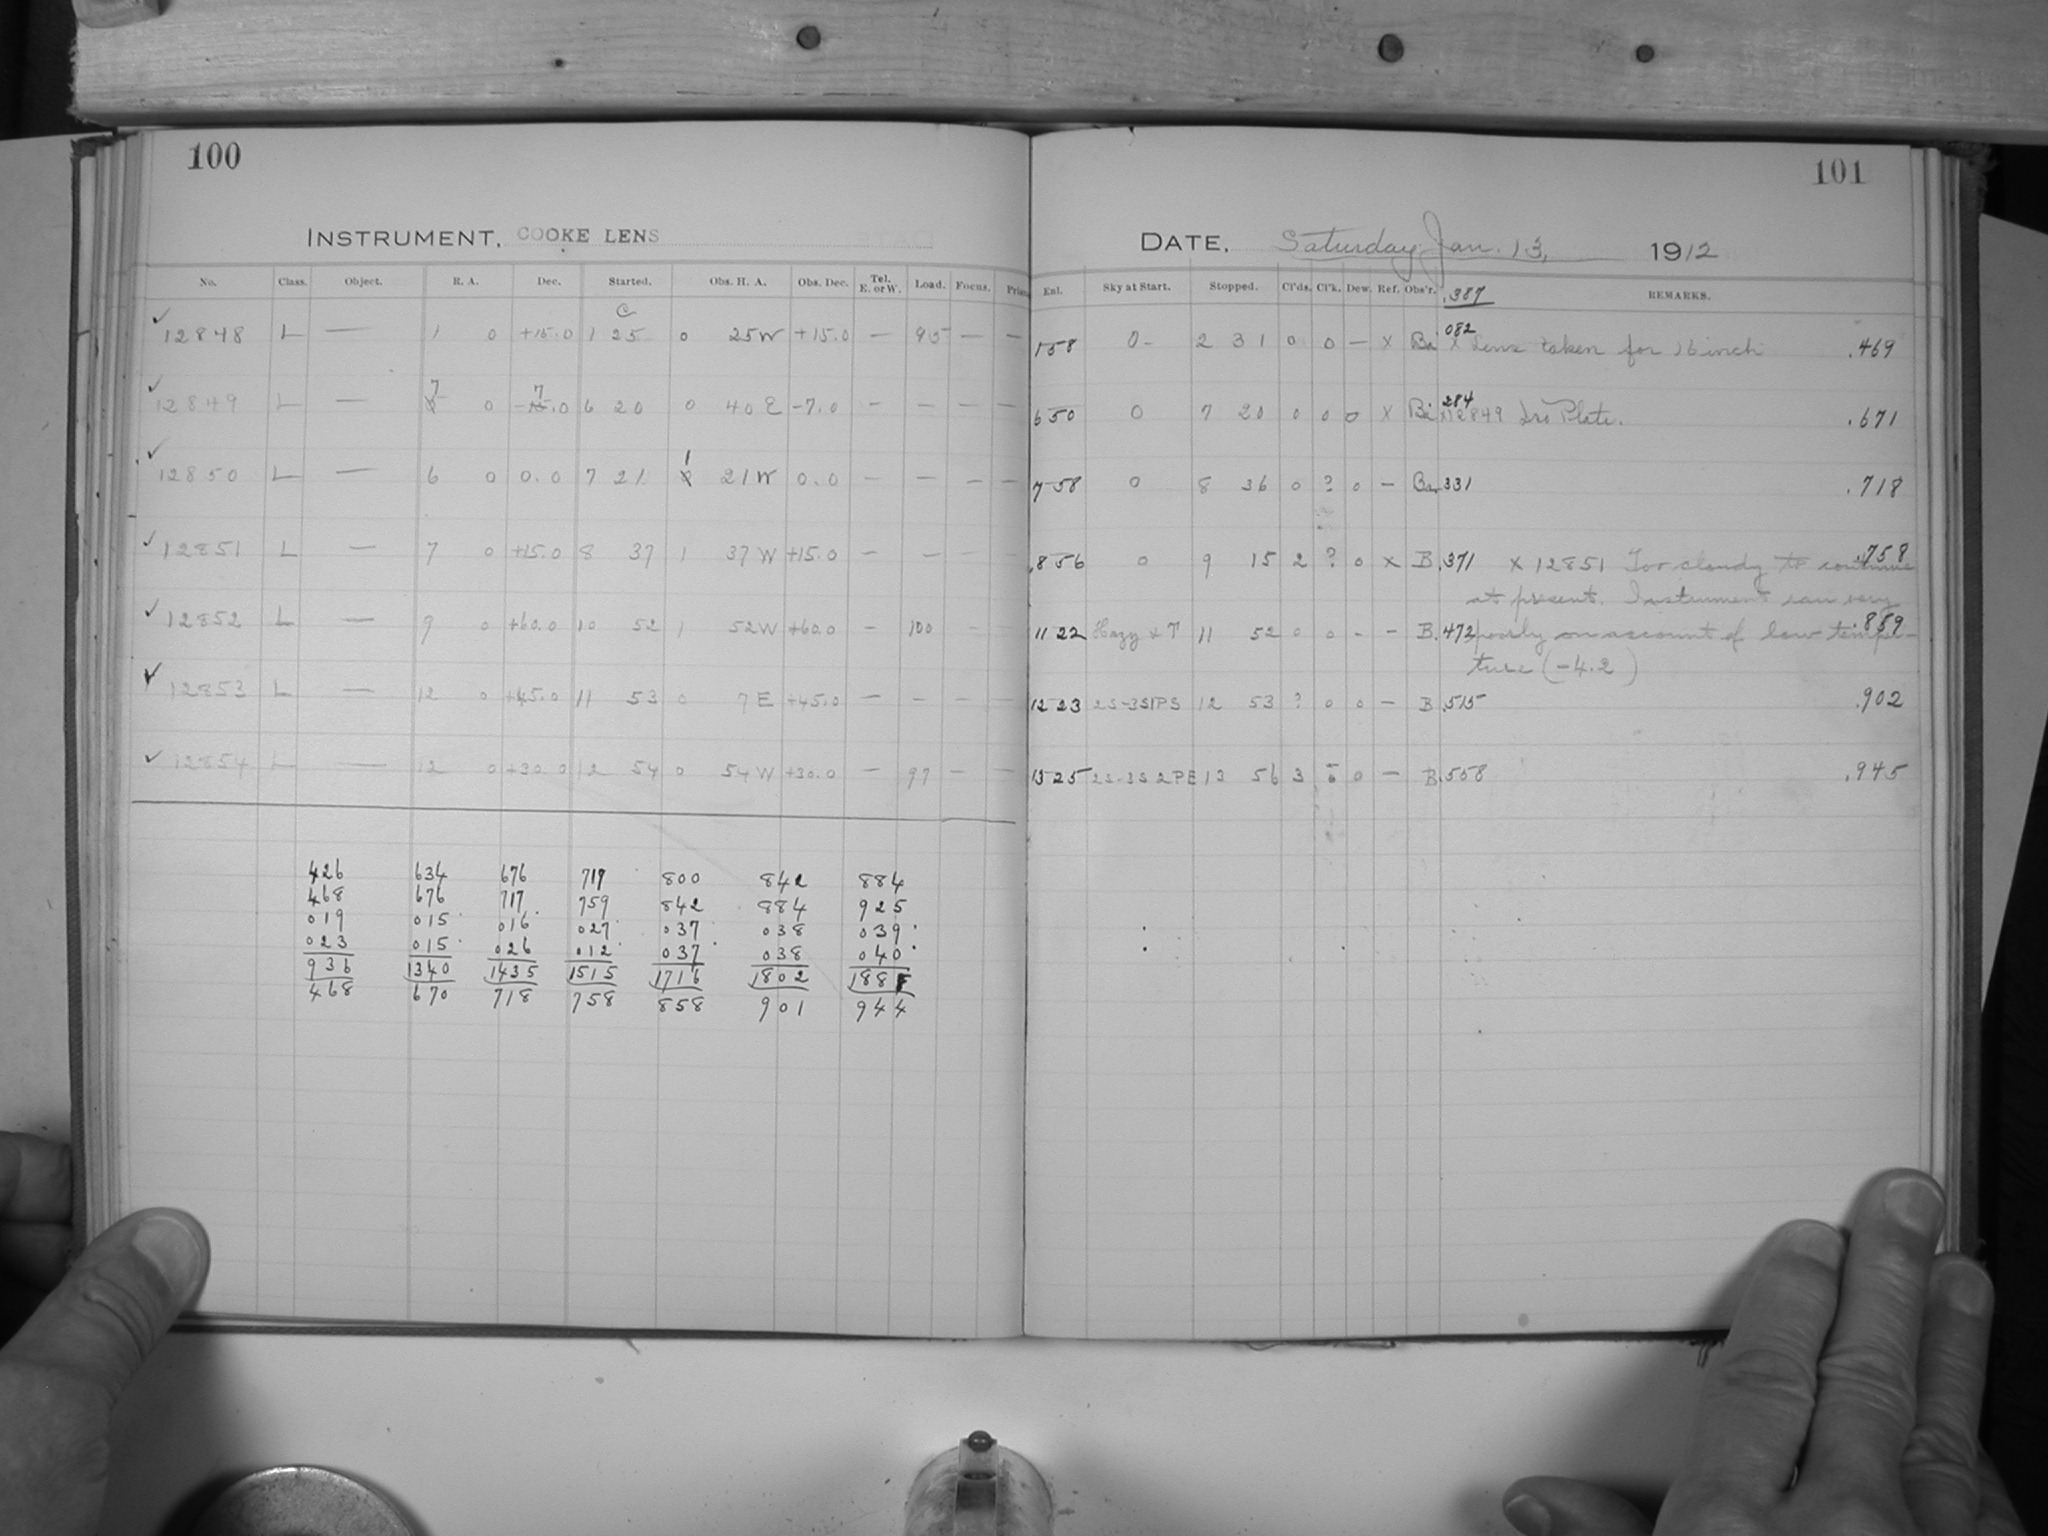 100
INSTRUMENT, COOKE LENS
No. Class. Object. R. A. Dec. Started. Obs. H. A. Obs. Dec. Tel. E. or W. Load. Focus.
C
✓ 12848 L — 1 0 +15.0 1 25 0 25 W +15.0 — 95 — —
7 7
✓ 12849 L — 0 .0 6 20 0 40 E -7.0 — — — —
1
✓ 12850 L — 6 0 0.0 7 21 21 W 0.0 — — — —
✓ 12851 L — 7 0 +15.0 8 37 1 37 W +15.0 — — — —
✓ 12852 L — 9 0 +60.0 10 52 1 52 W +60.0 — 100 — —
✓ 12853 L — 12 0 +45.0 11 53 0 7 E +45.0 — — — —
✓ 12854 L — 12 0 +30.0 12 54 0 54 W +30.0 — 97 — —
426 634 676 719 800 842 884
468 676 717 759 842 884 925
019 015 016 027 037 038 039
023 015 026 012 037 038 040
936 1340 1435 1515 1716 1802 188
468 670 718 758 858 901 944
101
DATE, Saturday Jan. 13, 1912
Enl. Sky at Start. Stopped. Cl'ds. Cl'k. Dew. Ref. Obs'r. .387 REMARKS.
082
1 58 0- 2 31 0 0 — x Ba x Lens taken for 16 inch .469
284
6 50 0 7 20 0 0 0 x Ba x12849 Iso Plate. .671
7 58 0 8 36 0 ? 0 — Ba .331 .718
8 56 0 9 15 2 ? 0 x B .371 x 12851 Too cloudy to continue .758
at present. Instrument ran very
11 22 Hazy & T 11 52 0 0 — — B .472 poorly on account of low tempera- .859
ture (-4.2)
12 23 2S-3S1PS 12 53 ? 0 0 — B .515 .902
13 25 2S-3S2PE 13 56 3 0 — B .558 .945